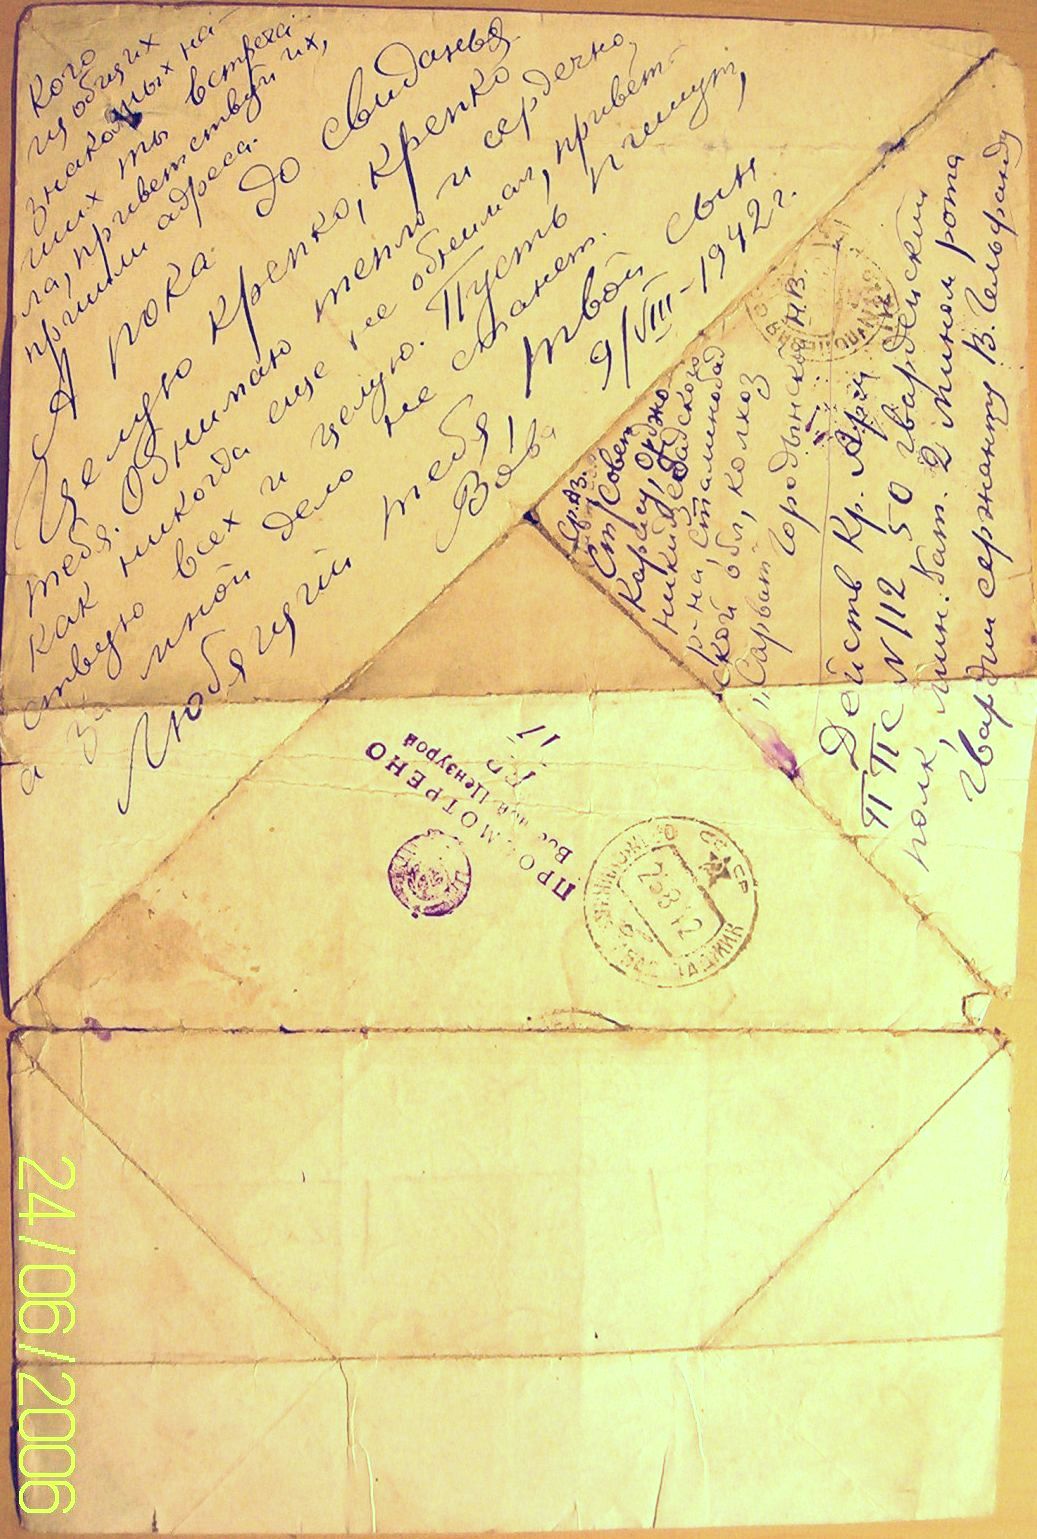 кого
из общих
знакомых на-
ших ты встреча-
ла, приветствуй их,
пришли адреса.
А пока до свиданья
Целую крепко, крепко
тебя. Обнимаю тепло и сердечно,
как никогда еще не обнимал, привет-
ствую всех и целую. Пусть пишут,
а за мной дело не станет.
Любящий тебя, твой сын
Вова
9/VIII-1942 г.
Ср. Аз.
Ст. Совет
Карасу, Орджо
никидзеабадского
р-на, Сталинабад
ской обл, колхоз
„Сарват"
Городынской Н.В.
Действ Кр. Армия
ППС N 1112 50 гвардейский
полк, мин. бат. 2 мином рота
Гвардии сержанту В. Гельфанду
ПРОСМОТРЕНО
Военной Цензурой
17
СССР
26 8 42
ТАДЖИК
24/06/2006